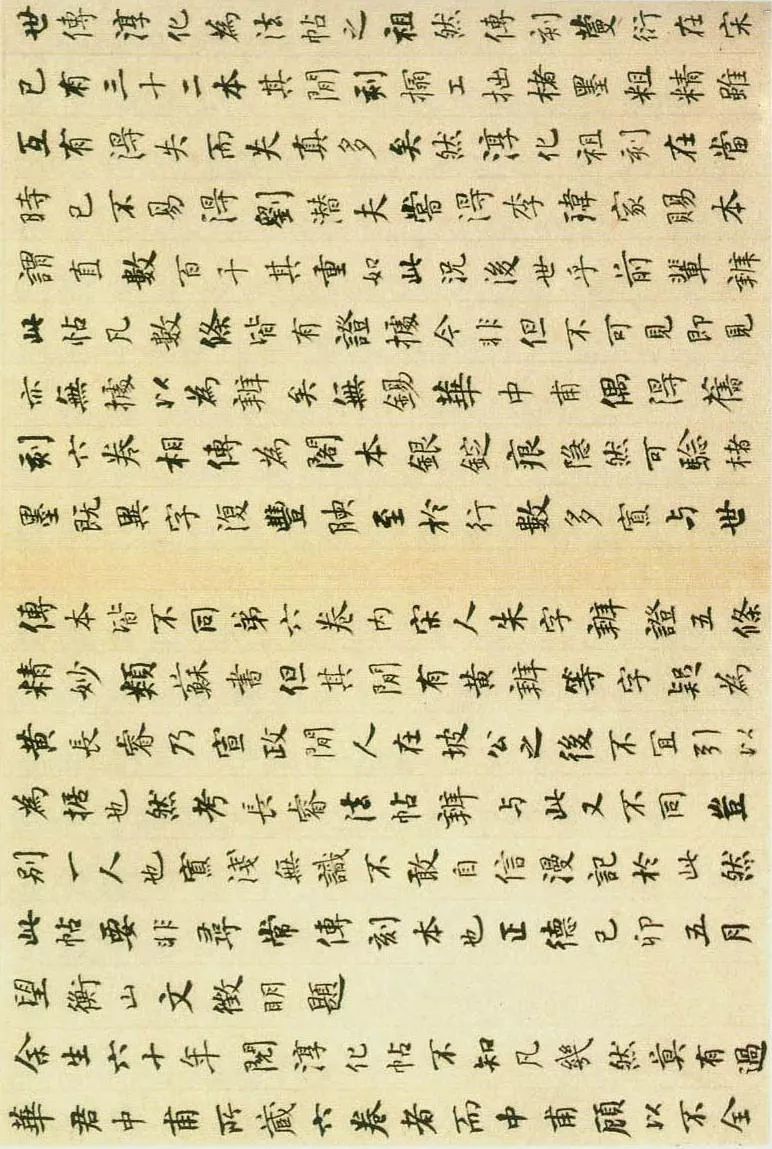 世傳淳化為法帖之祖然傳刻蔓衍在宋
已有三十二本其閒刻搨工拙楮墨粗精雖
互有得失而失真多矣然淳化祖刻在當
時已不易得劉潛夫嘗得李瑋家賜本
謂直數百千其重如此況後世乎前輩辨
此帖凡數條皆有證據今非但不可見即見
亦無據以為辨矣無錫華中甫偶得舊
刻六卷相傳為閣本銀錠痕隱然可驗楮
墨既異字復豐腴至於行數多寡与世
傳本皆不同第六卷內宋人朱字辨證五條
精妙類蘇書但其閒有黃辨等字疑為
黃長睿乃宣政閒人在坡公之後不宜引以
為据也然考長睿法帖辨与此又不同豈
別一人也寡淺無識不敢自信漫記於此然
此帖要非尋常傳刻本也正德己卯五月
望衡山文徵明題
余生六十年閱淳化帖不知凡幾然莫有過
華君中甫所藏六卷者而中甫顧以不全